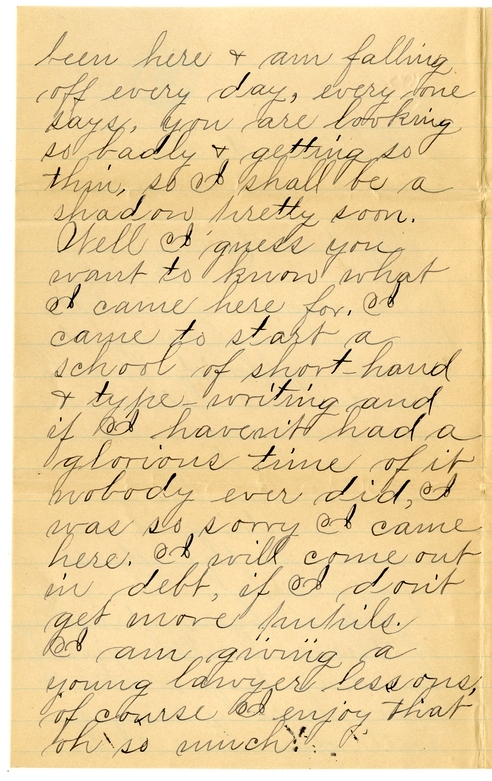 been here & am falling
off every day, every one
says, you are looking
so badly & getting so
thin, so I shall be a
shadow pretty soon.
Well I guess you
want to know what
I came here for. I
came to start a
school of short-hand
& type-writing and
if I haven't had a
glorious time of it
nobody ever did, I
was so sorry I came
here. I will come out
in debt, if I don't
get more pupils.
I am giviig a
young lawyer lessons,
of course I enjoy that
oh so much!